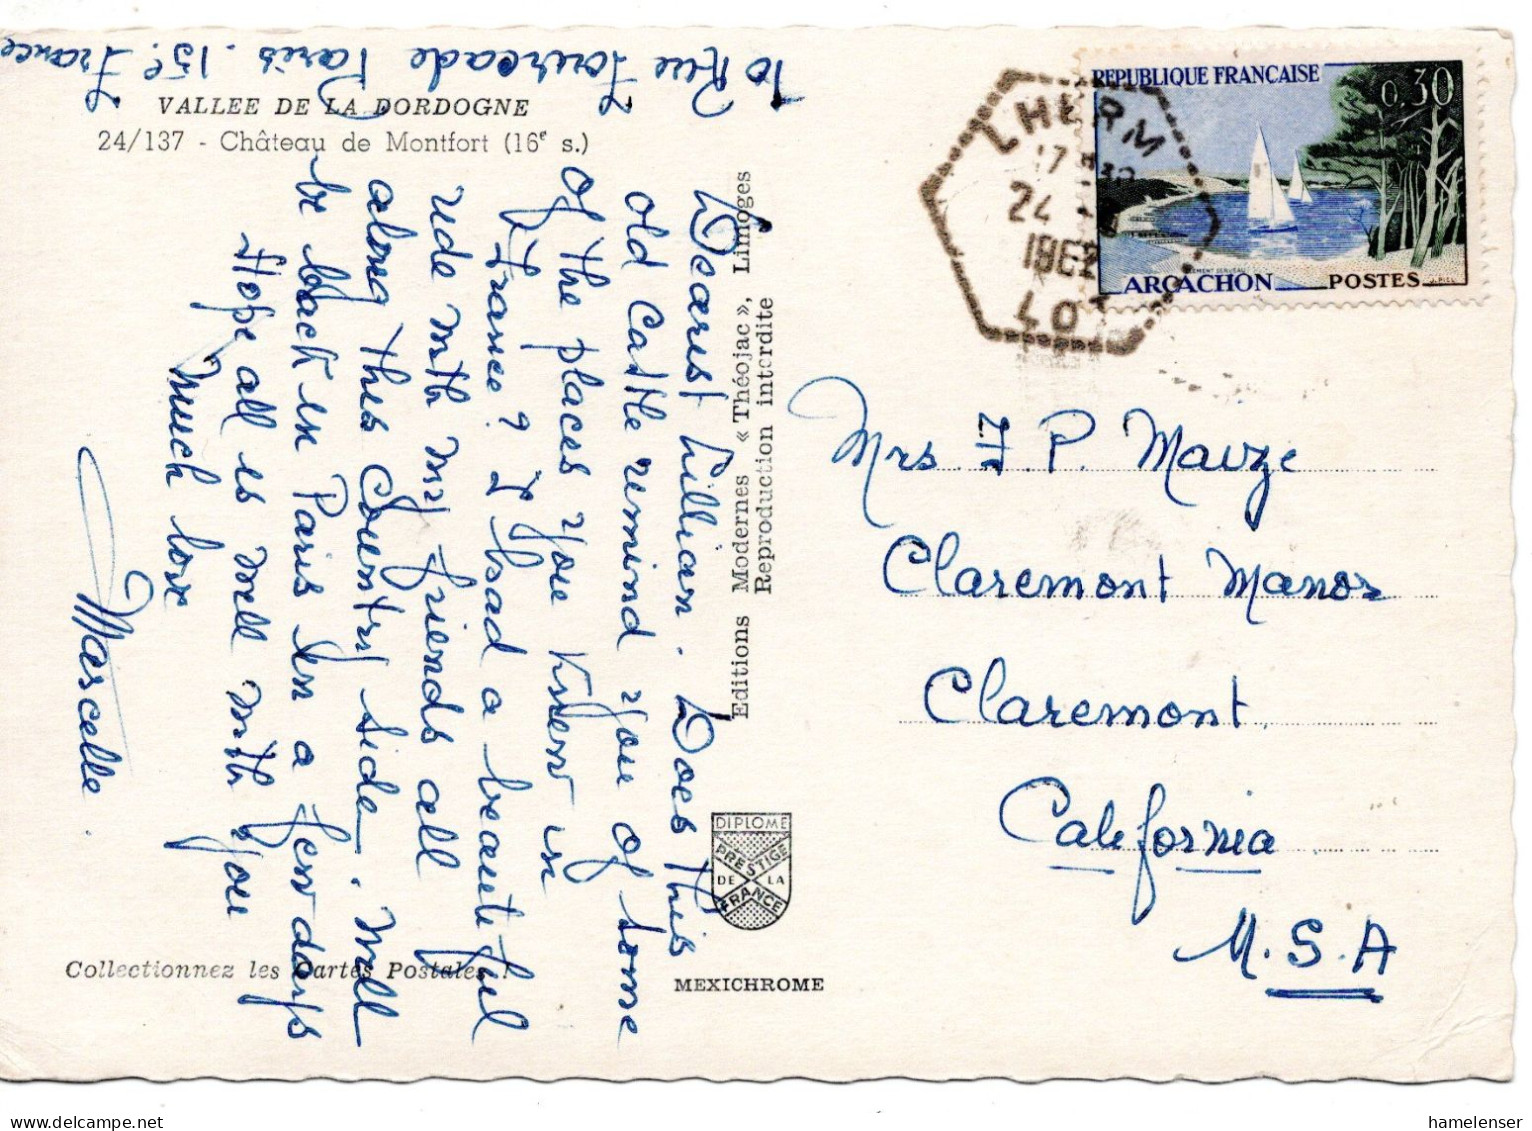 10 Rue Fourcade Paris. 15e. France
VALLEE DE LA DORDOGNE
24/137 - Château de Montfort (16e s.)
Dearest Lillian. Does this
old Castle remind you of some
of the places you knew in
France? I had a beautiful
ride with my friends all
along this Country side. Will
be back in Paris in a few days
Hope all is well with you
Much love
Marcelle.
Editions Modernes « Théojac », Limoges
Reproduction interdite
DIPLOME
PRESTIGE
DE LA
FRANCE
Collectionnez les Cartes Postales !
MEXICHROME
LHERM
17 H30
24
1962
LOT
REPUBLIQUE FRANÇAISE
0,30
ARCACHON
POSTES
Mrs F. P. Mauze
Claremont Manor
Claremont
California
U.S.A
hamelenser